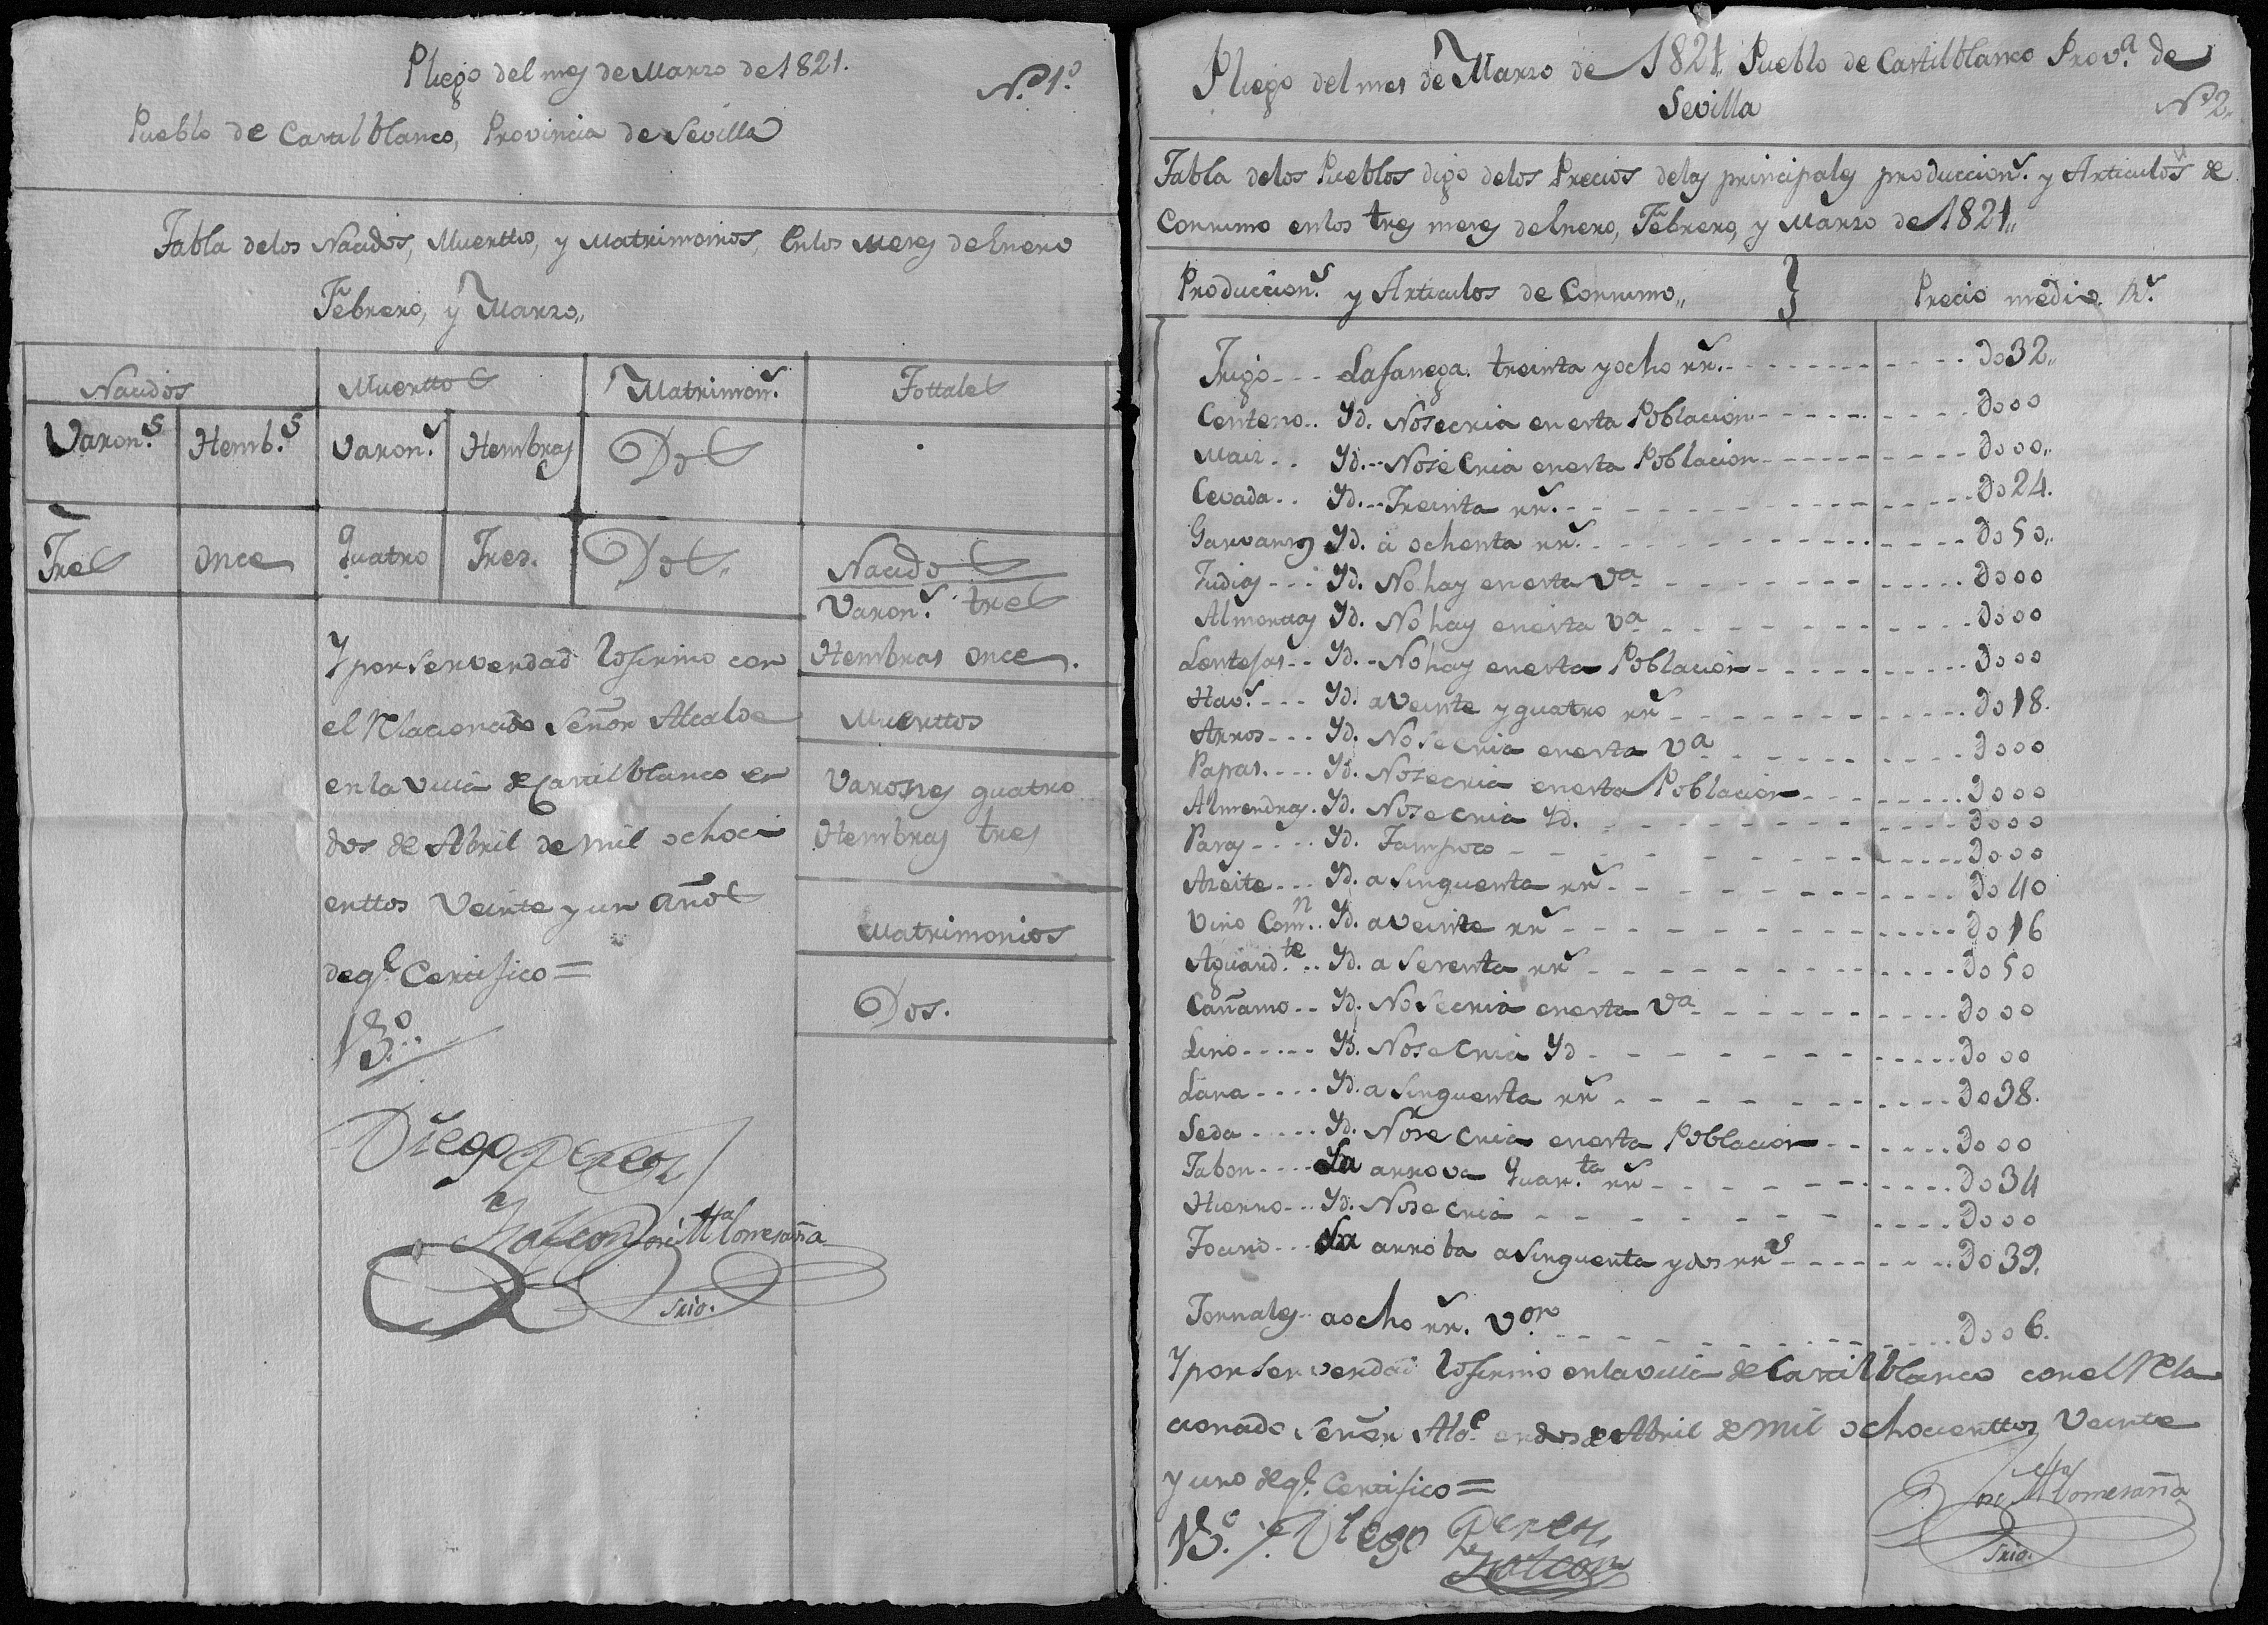 Pliego del mes de Marzo de 1821.
N.º 1.º
Pueblo de Castilblanco, Provincia de Sevilla
Tabla delos Nacidos, Muerttos, y Matrimonios, enlos meses de Enero
Febrero, y Marzo,,
Nacidos Muerttos Matrimon.s Tottales
Varon.s Hemb.s Varon.s Hembras Dos
Tres once quatro Tres. Dos.
Nacidos
Varon.s tres
Hembras once.
Muerttos
Varones quatro
Hembras tres
Matrimonios
Dos.
Y por ser verdad lo firmo con
el Relacionado Señor Alcalde
en la villa de Castilblanco en
dos de Abril de mil ochoci
enttos Veinte y un años
de q.e Certifico =
V.º B.º
Diego Perez
Halcon
José M.a Lomeraña
Srio.
Pliego del mes de Marzo de 1821,, Pueblo de Castilblanco Prov.a de
Sevilla
N.º 2,,
Tabla delos Pueblos digo delos Precios delas principales produccion.s y Articulos de
Consumo enlos tres meses de Enero, Febrero, y Marzo de 1821,,
Produccion.s y Articulos de Consumo,, } Precio medio. R.s
Trigo --- La fanega. treinta y ocho rr.s --- Do32,,
Centeno.. Yd. No se cria en esta Poblacion --- Do00
Maiz.. Yd. -- No se Cria en esta Poblacion --- Do00,,
Cevada.. Yd. -- Treinta rr.s --- Do24.
Garvanzos Yd. a ochenta rr.s --- Do50,,
Judias --- Yd. No hay en esta V.a --- Do00
Almortas Yd. No hay en esta V.a --- Do00
Lentejas -- Yd. - No hay en esta Poblacion --- Do00
Hav.s --- Yd. a veinte y quatro rr.s --- Do18.
Arros --- Yd. No se cria en esta V.a --- Do00
Papas. --- Yd. No se cria en esta Poblacion --- Do00
Almendras. Yd. No se cria Yd. --- Do00
Pasas --- Yd. Tampoco --- Do00
Azeite --- Yd. a Sinquenta rr.s --- Do40
Vino Com.n .. Yd. a veinte rr.s --- Do16
Aguard.te .. Yd. a Sesenta rr.s --- Do50
Cañamo -- Yd. No Se cria en esta V.a --- Do00
Lino --- Yd. No se Cria Yd --- Do00
Lana --- Yd. a Sinquenta rr.s --- Do38.
Seda --- Yd. No se Cria en esta Poblacion --- Do00
Jabon --- La arrova Quar.ta rr.s --- Do34
Hierro -- Yd. No se Cria --- Do00
Tocino --- La arroba a Sinquenta y dos rr.s --- Do39.
Jornales -- a ocho rr.s V.on --- Do06.
Y por Ser verdad lo firmo en la villa de Castilblanco con el Rela
cionado Señor Alc.e en dos de Abril de mil ochocienttos Veinte
y uno de q.e Certifico =
V.º B.º Diego Perez
Halcon
José M.a Lomeraña
Srio.